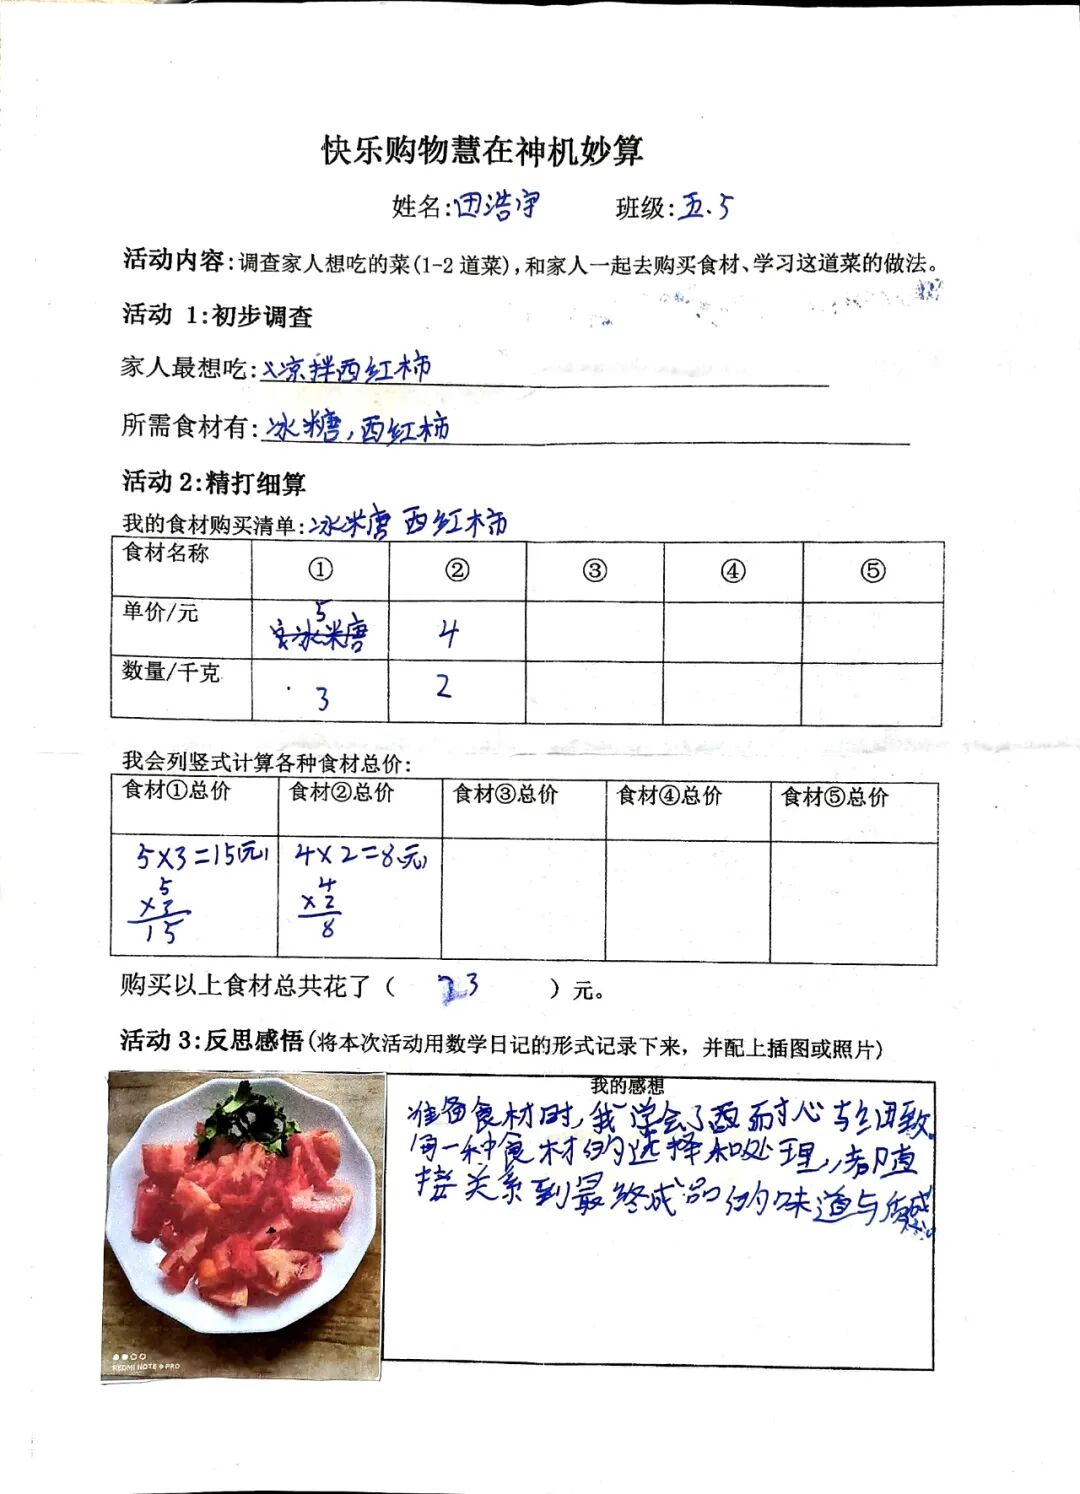 快乐购物慧在神机妙算
姓名:田浩宇 班级:五.5
活动内容:调查家人想吃的菜(1-2道菜),和家人一起去购买食材、学习这道菜的做法。
活动 1:初步调查
家人最想吃:凉拌西红柿
所需食材有:冰糖,西红柿
活动2:精打细算
我的食材购买清单:冰糖 西红柿
食材名称 ① ② ③ ④ ⑤
单价/元 5 冰糖 4
数量/千克 3 2
我会列竖式计算各种食材总价:
食材①总价 食材②总价 食材③总价 食材④总价 食材⑤总价
5×3=15(元) 4×2=8(元)
5 4
×3 ×2
15 8
购买以上食材总共花了( 23 )元。
活动3:反思感悟(将本次活动用数学日记的形式记录下来，并配上插图或照片)
我的感想
准备食材时,我学会了耐心与细致
每一种食材的选择和处理,都直
接关系到最终成品的味道与质感。
REDMI NOTE 9 PRO